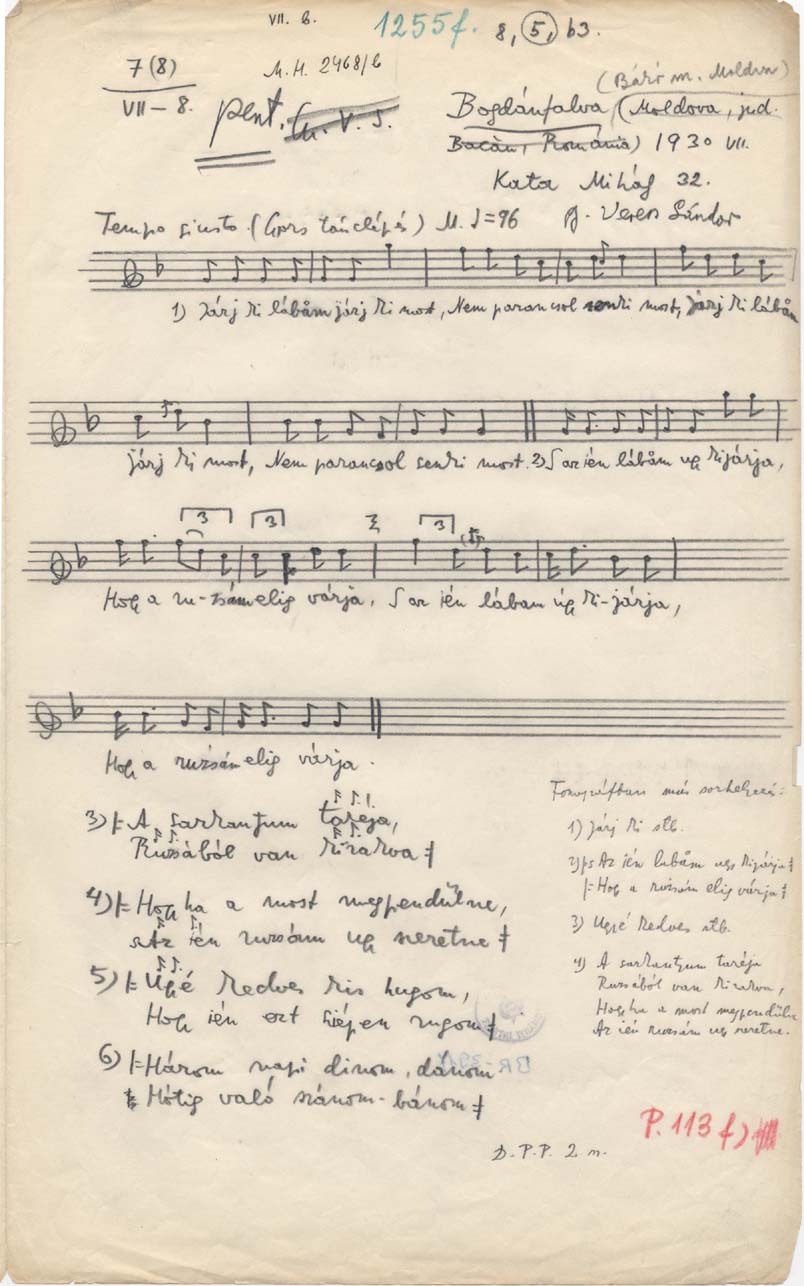 VII. b.
1255f.
8, 5, b3.
7(8)
VII-8.
M.H. 2468/b
pent.
(Báró m. Moldva)
Bogdánfalva (Moldova, jud.
Bacău, Románia) 1930 VII.
Kata Mihály 32.
Tempo giusto. (Gyors tánclépés) M. ♩=96
gy. Veress Sándor
1) Járj ki lábåm járj ki most, Nem parancsol senki most, Járj ki lábåm
járj ki most, Nem parancsol senki most. 2) S az ién lábåm ugy kijárja,
3 3 3
Hogy a ru-zsám elig várja. S az ién lábam úgy ki-járja,
Hogy a ruzsám elig várja.
3) A sarkantyum taréja,
Ruzsából van kirakva
4) Hogyha a most megpendülne,
Az ién ruzsám ugy szeretne
5) Ugyé kedves kis hugom,
Hogy ién ezt siépen rugom
6) Három napi dinom, dánom
Hótig való szánom-bánom
Fonográfban más sorhelyezés:
1) Járj ki stb.
2) S Az ién lábåm ugy kijárja
Hogy a ruzsám elig várja
3) Ugyé kedves stb.
4) A sarkantyum taréja
Ruzsából van kirakva,
Hogyha a most megpendülne
Az ién ruzsám ugy szeretne.
P. 113 f)
D.P.P. 2 m.